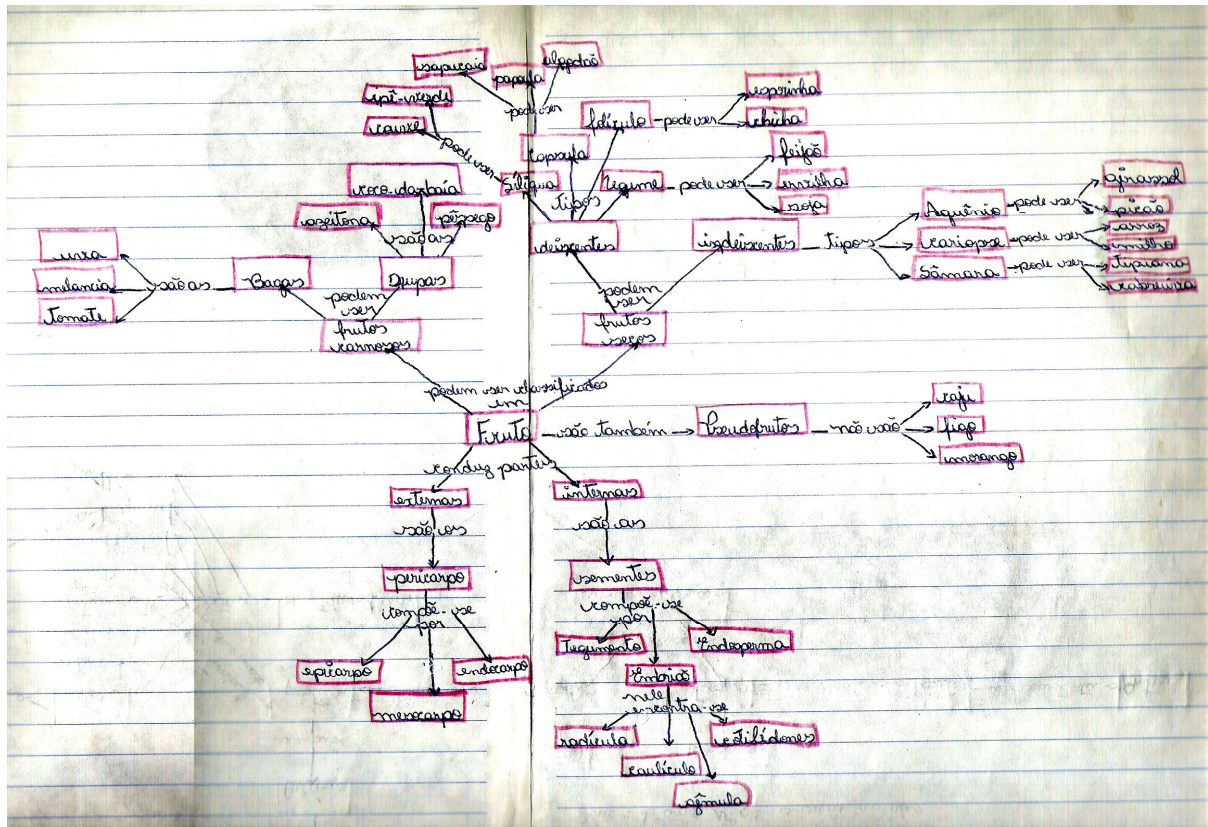 sapucaia
papoula
algodão
pode ser
ipê-verde
couve
pode ser
folículo
pode ser
esporinha
chicha
cápsula
Síliqua
tipos
legume
pode ser
feijão
ervilha
soja
coco-da-baía
azeitona
pêssego
são as
deiscentes
indeiscentes
tipos
Aquênio
pode ser
girassol
picão
cariopse
pode ser
arroz
milho
Sâmara
pode ser
tipuana
cabreúva
uva
melancia
tomate
são as
Bagas
Drupas
podem
ser
frutos
carnosos
podem
ser
frutos
secos
podem ser classificados
em
Fruto
são também
Pseudofrutos
não são
caju
figo
morango
conduz partes
externas
são os
pericarpo
compõe-se
por
epicarpo
mesocarpo
endocarpo
internas
são as
sementes
compõe-se
por
Tegumento
Endosperma
Embrião
nele
encontra-se
radícula
caulículo
gêmula
cotilédones